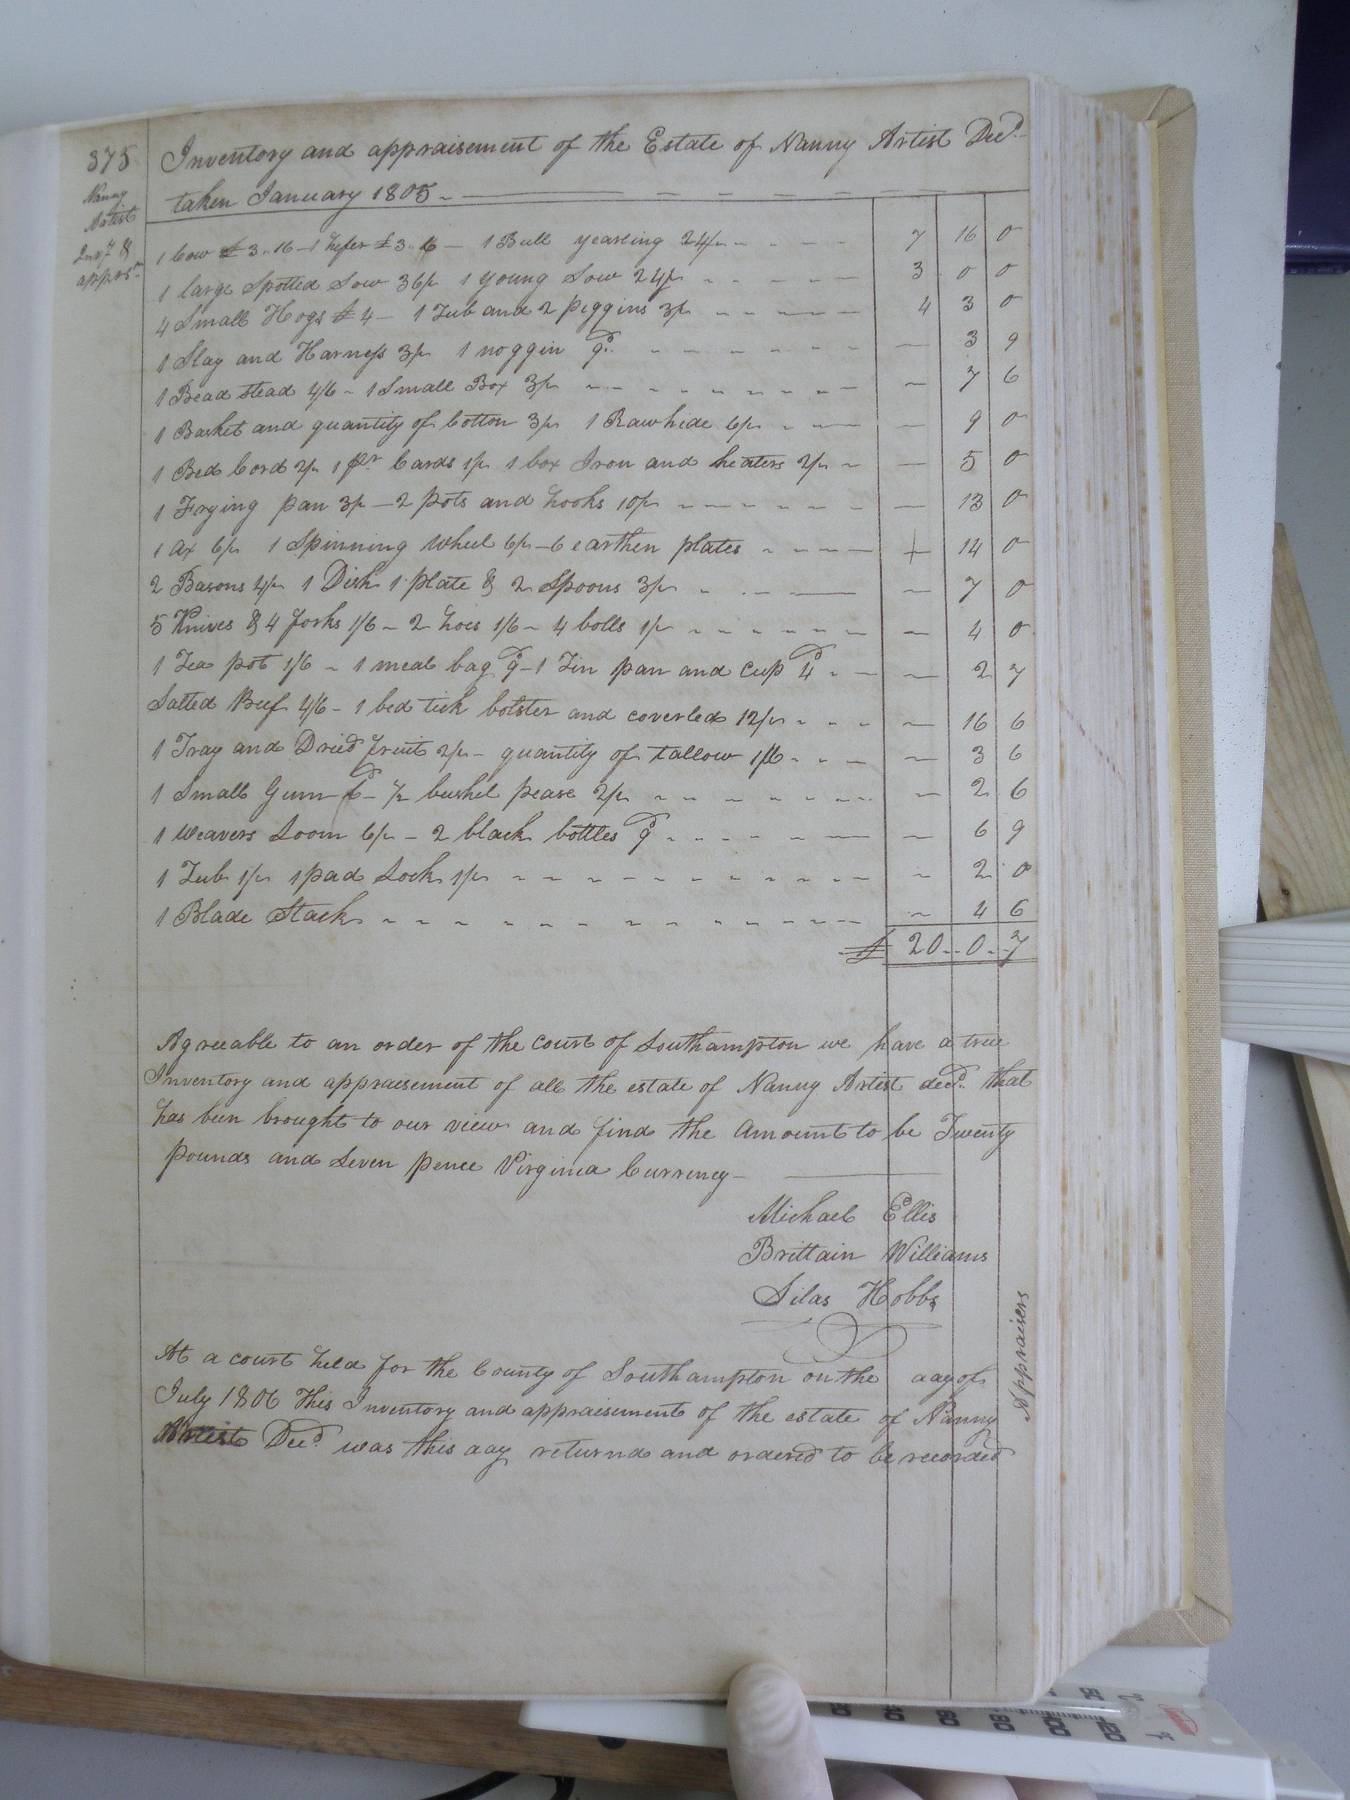 375
Nanny
Artist
Invy &
apprsmt
Inventory and appraisement of the Estate of Nanny Artist Decd.
taken January 1805
1 Cow £3..16 - 1 hefer £3..16 - 1 Bull yearling 24/ 7 16 0
1 large Spotted Sow 36/ 1 young Sow 24/ 3 0 0
4 Small Hogs £4 - 1 Tub and 2 piggins 3/ 4 3 0
1 Slay and Harness 3/ 1 noggin 9d. — 3 9
1 Bead stead 4/6 - 1 Small Box 3/ — 7 6
1 Basket and quantity of Cotton 3/ 1 Rawhide 6/ — 9 0
1 Bed Cord 2/ 1 pr Cards 1/ 1 box Iron and heaters 2/ — 5 0
1 Frying pan 3/ - 2 pots and hooks 10/ — 13 0
1 ax 6/ 1 Spinning Wheel 6/ - 6 earthen plates — 14 0
2 Basons 4/ 1 Dish 1 plate & 2 Spoons 3/ — 7 0
5 Knives & 4 forks 1/6 - 2 hoes 1/6 - 4 bolls 1/ — 4 0
1 Tea pot 1/6 - 1 meal bag 9d - 1 Tin pan and Cup 4d — 2 7
Salted Beef 4/6 - 1 bed tick bolster and coverled 12/ — 16 6
1 Tray and Dried fruit 2/ - quantity of tallow 1/6 — 3 6
1 Small Gum 6d - 1/2 bushel pease 2/ — 2 6
1 Weavers Loom 6/ - 2 black bottles 9d — 6 9
1 Tub 1/ 1 pad Lock 1/ — 2 0
1 Blade Stack — 4 6
£ 20..0..7
Agreeable to an order of the court of Southampton we have a true
Inventory and appraisement of all the estate of Nanny Artist decd. that
has been brought to our view and find the amount to be Twenty
pounds and Seven pence Virginia Currency
Michael Ellis
Brittain Williams
Silas Hobbs
Appraisers
At a court held for the County of Southampton on the day of
July 1806 This Inventory and appraisement of the estate of Nanny
Artist Decd. was this day returnd and ordered to be recorded
80
100
120
°C
°F